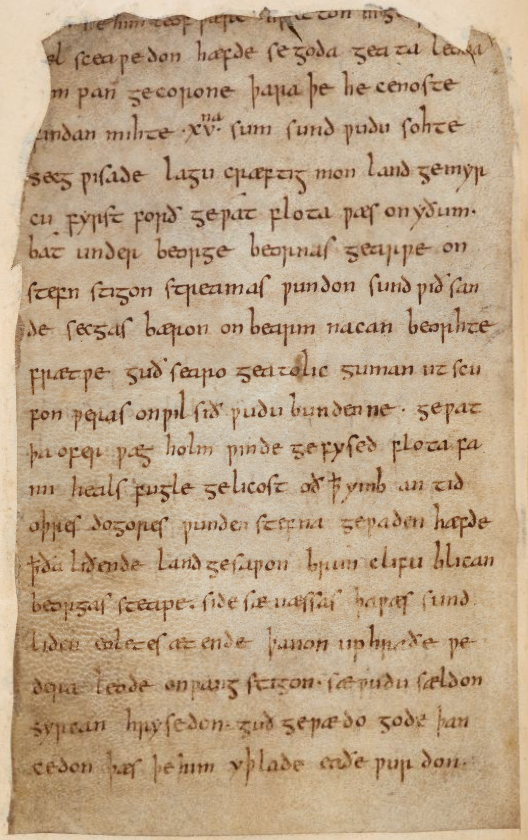 þe him leof ƿære
sceaƿedon hæfde se goda geata leoda
gecorone þara þe he cenoste
findan mihte ·xv·ⁿᵃ sum sund ƿudu sohte
secg ƿisade lagu cræftig mon land gemyr
cu fyrst forð geƿat flota ƿæs on yðum·
bat under beorge beornas gearƿe on
stefn stigon streamas ƿundon sund ƿið san
de secgas bæron on bearm nacan beorhte
frætƿe guð searo geatolic guman ut scu
fon ƿeras on ƿil sið ƿudu bundenne · geƿat
þa ofer ƿæg holm ƿinde gefysed flota fa
mi heals fugle gelicost oð ꝥ ymb an tid
oþres dogores ƿunden stefna geƿaden hæfde
ꝥ ða liðende land gesaƿon brim clifu blican
beorgas steape· side sæ næssas þa ƿæs sund
liden eoletes æt ende þanon up hraðe ƿe
dera leode on ƿang stigon· sæ ƿudu sældon
syrcan hrysedon· guð geƿædo gode þan
cedon þæs þe him yþ lade eaðe ƿur don·